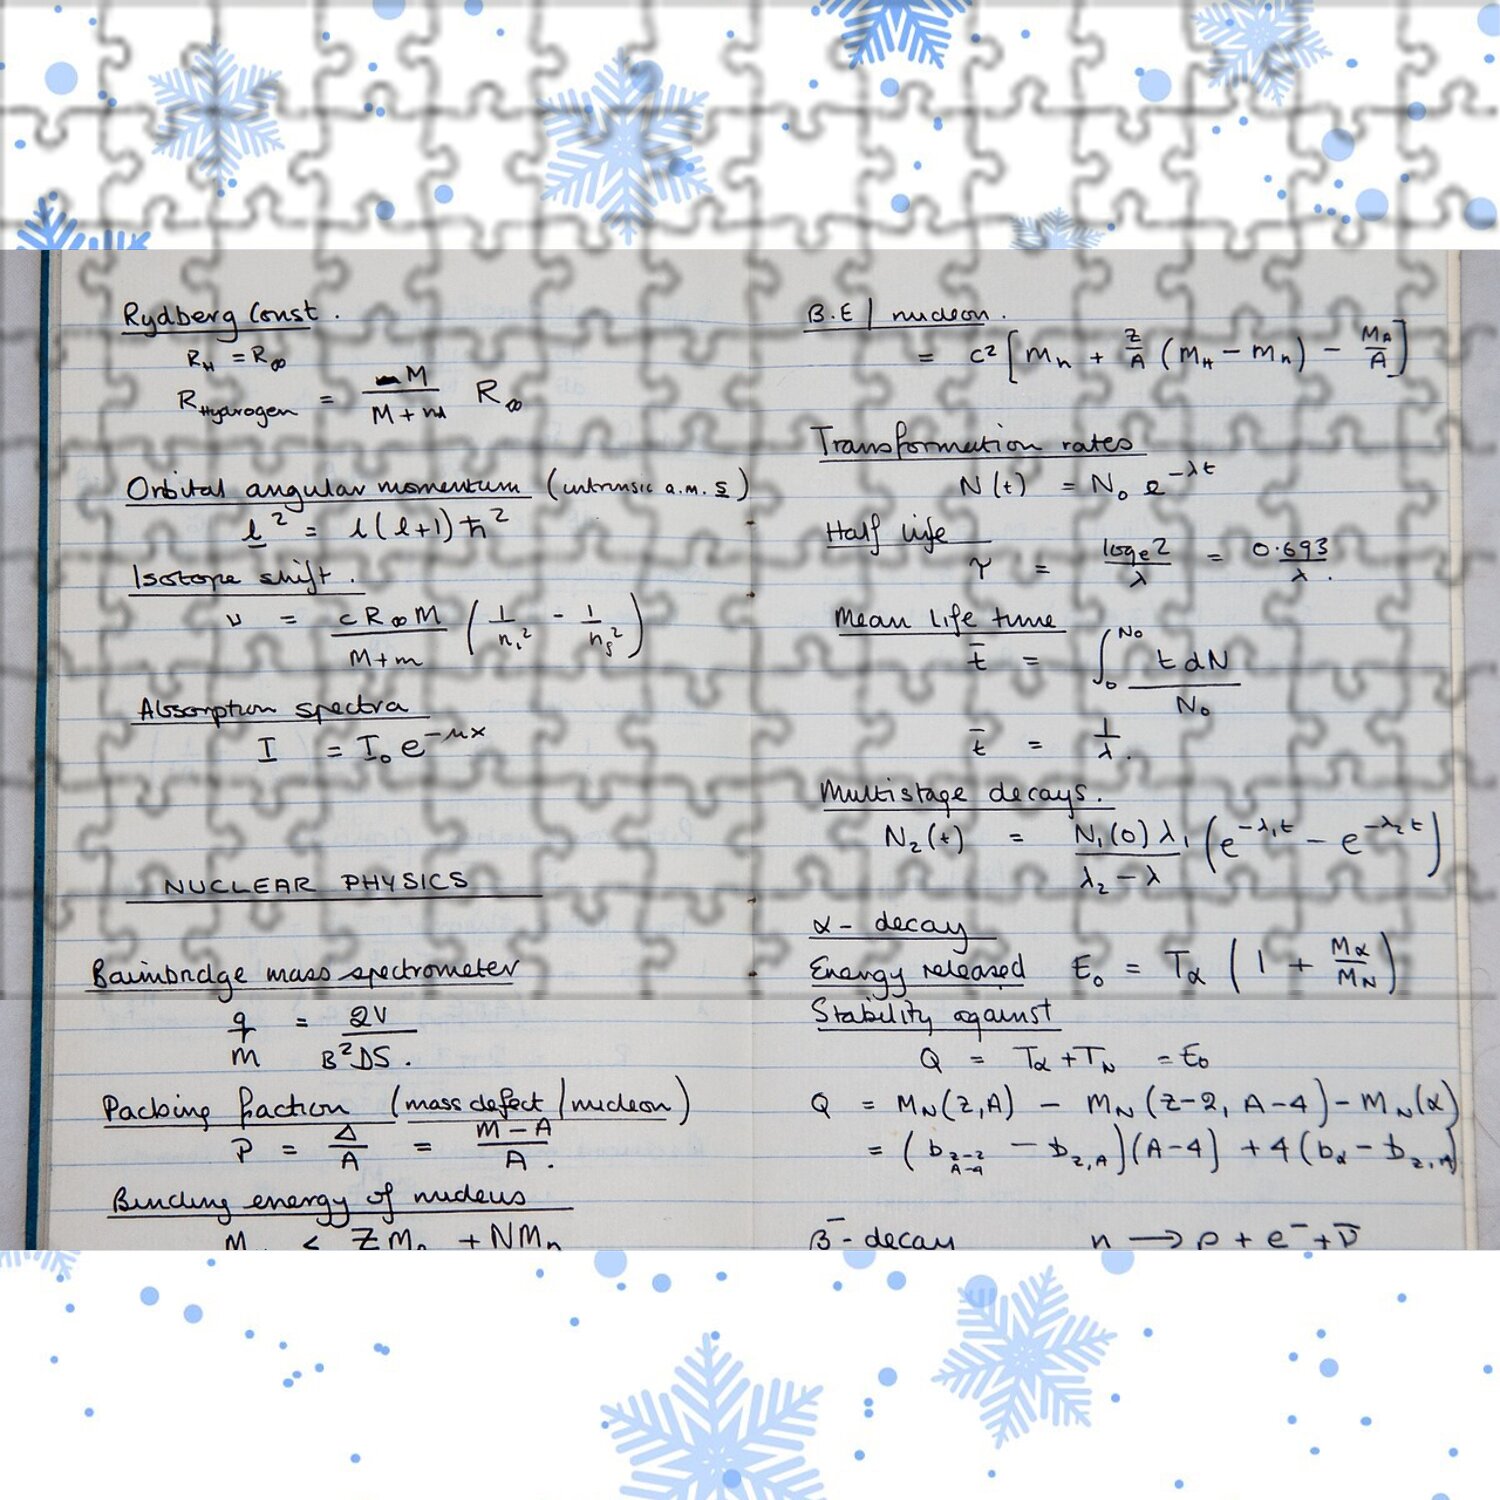 Rydberg Const.
R_H = R_∞
R_Hydrogen = M / (M + m) R_∞
Orbital angular momentum (intrinsic a.m. s)
l² = l(l+1)ħ²
Isotope shift.
ν = cR_∞M / (M+m) (1/n_i² - 1/n_f²)
Absorption spectra
I = I₀e^(-μx)
NUCLEAR PHYSICS
Bainbridge mass spectrometer
q/m = 2V / B²DS.
Packing fraction (mass defect / nucleon)
P = Δ/A = (M - A)/A.
Binding energy of nucleus
< ZM + NMn
B.E / nucleon.
= c² [ Mn + Z/A (M_H - Mn) - M_A/A ]
Transformation rates
N(t) = N₀ e^(-λt)
Half life
τ = log_e 2 / λ = 0.693 / λ.
Mean life time
t̄ = ∫₀^N₀ t dN / N₀
t̄ = 1/λ.
Multistage decays.
N₂(t) = N₁(0) λ₁ / (λ₂ - λ) (e^(-λ₁t) - e^(-λ₂t))
α - decay
Energy released E₀ = Tα (1 + Mα/M_N)
Stability against
Q = Tα + T_N = E₀
Q = M_N(Z,A) - M_N(Z-2, A-4) - M_N(α)
= (b_Z-2,A-4 - b_Z,A)(A-4) + 4(bα - b_Z,A)
β⁻ - decay n → p + e⁻ + ν̄